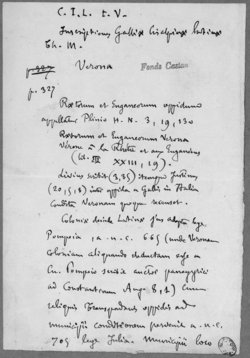 C. I. L. t. V.
Inscriptiones Galliæ Cisalpinæ latinæ
Th. M.
Verona
Fonds Cestan
p. 327
Rætorum et Euganeorum oppidum
appellatur Plinio H. N. 3, 19, 130
Rætorum et Euganeorum Verona
Verona à la Rhétie et aux Euganéens
XXIII, 19).
Livius scribit (5,35) itemque Justinus
(20, 5, 8) inter oppida a Gallis in Italia
condita Veronam quoque recenset.
Coloniæ deinde Latinæ jus adepta lege
Pompeia, a. n. c. 665 (unde Veronam
coloniam aliquando deductam esse a
Cn. Pompeio Strabone auctor panegyrici
ad Constantinum Aug. 8, 1) cum
reliquis Transpadanis oppidis ad
municipii conditionem pervenit a. n. c.
705 lege Julia. Municipii loco